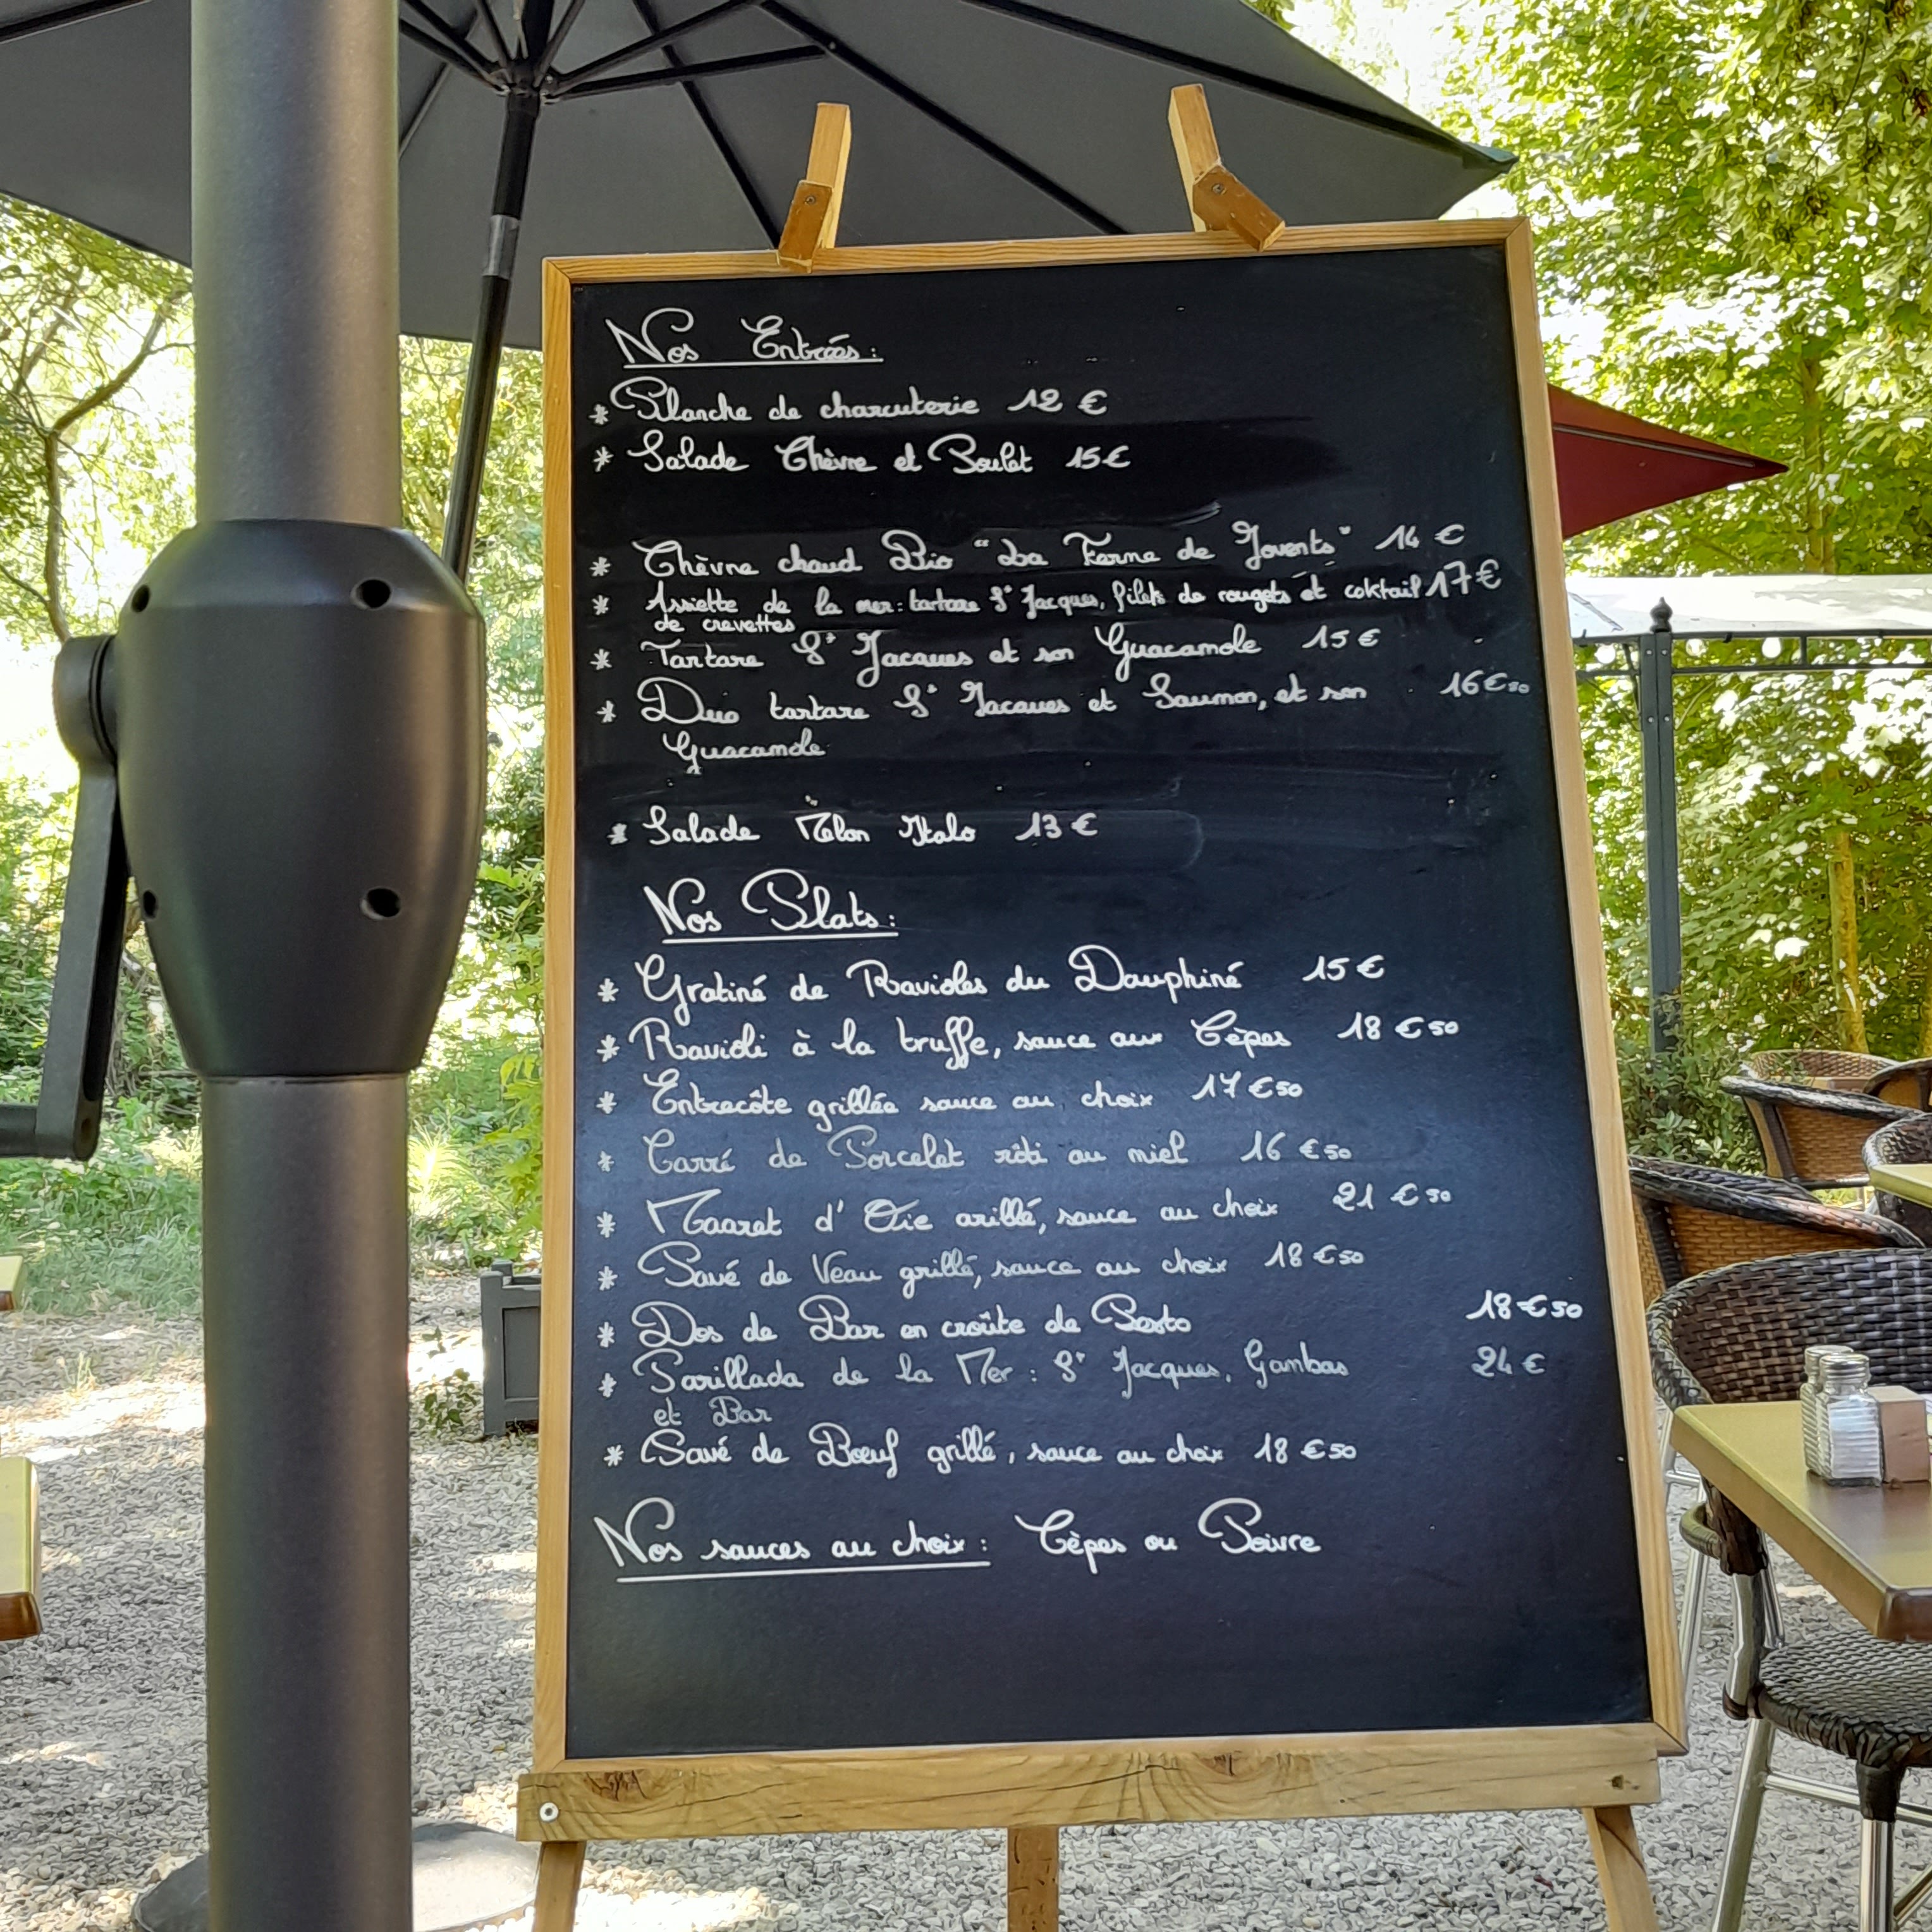 Nos Entrées :
* Planche de charcuterie 12 €
* Salade Chèvre et Poulet 15 €
* Chèvre chaud Bio "La Ferme de Jovents" 14 €
* Assiette de la mer : tartare St Jacques, filets de rougets et coktail 17 €
de crevettes
* Tartare St Jacques et son Guacamole 15 €
* Duo tartare St Jacques et Saumon, et son 16 € 50
Guacamole
* Salade Melon Italo 13 €
Nos Plats :
* Gratiné de Ravioles du Dauphiné 15 €
* Ravioli à la truffe, sauce aux Cèpes 18 € 50
* Entrecôte grillée sauce au choix 17 € 50
* Carré de Porcelet rôti au miel 16 € 50
* Magret d'Oie grillé, sauce au choix 21 € 50
* Pavé de Veau grillé, sauce au choix 18 € 50
* Dos de Bar en croûte de Pesto 18 € 50
* Parillada de la Mer : St Jacques, Gambas 24 €
et Bar
* Pavé de Bœuf grillé, sauce au choix 18 € 50
Nos sauces au choix : Cèpes ou Poivre